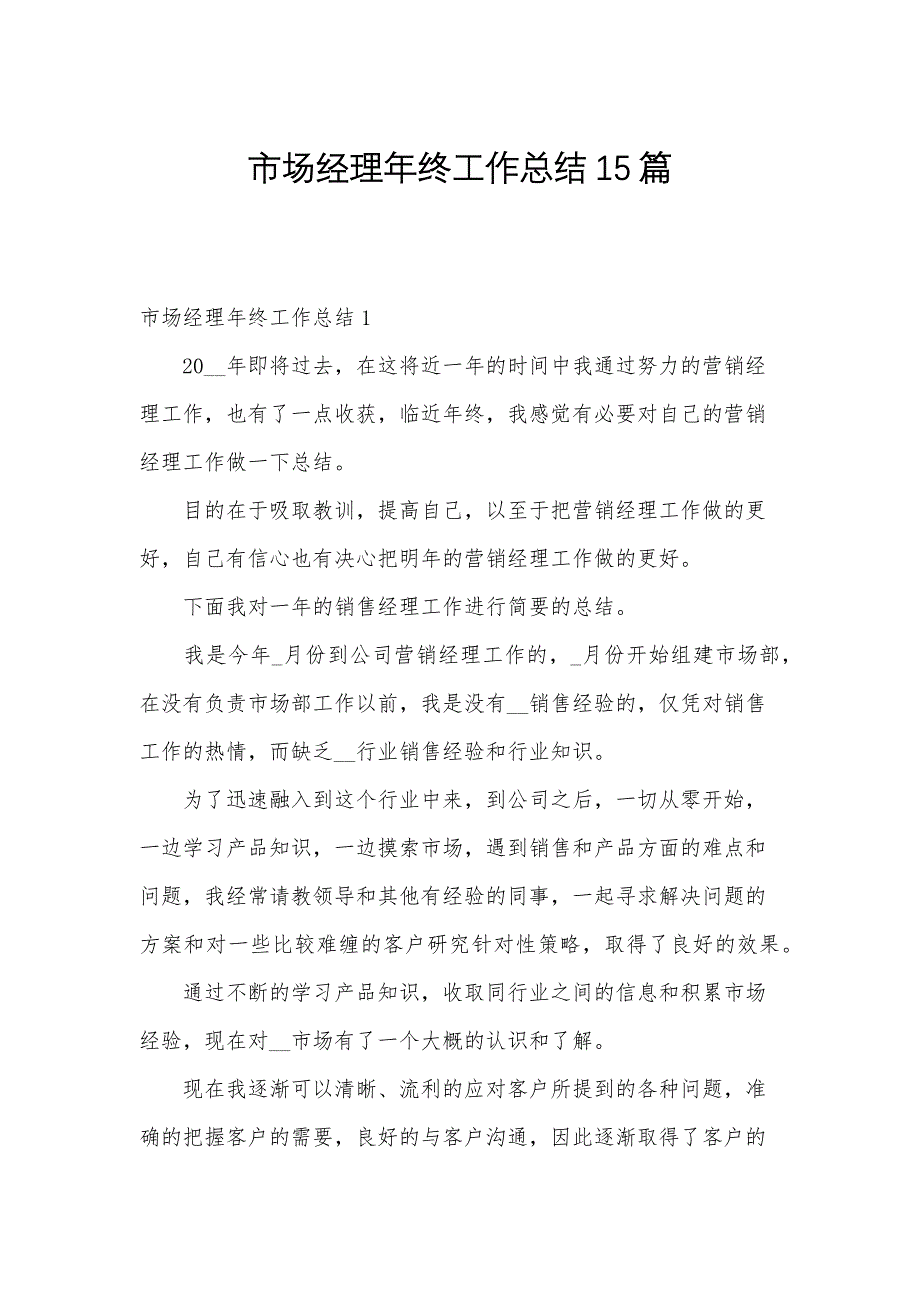 市场经理年终工作总结15篇
市场经理年终工作总结1
20__年即将过去，在这将近一年的时间中我通过努力的营销经
理工作，也有了一点收获，临近年终，我感觉有必要对自己的营销
经理工作做一下总结。
目的在于吸取教训，提高自己，以至于把营销经理工作做的更
好，自己有信心也有决心把明年的营销经理工作做的更好。
下面我对一年的销售经理工作进行简要的总结。
我是今年_月份到公司营销经理工作的，_月份开始组建市场部，
在没有负责市场部工作以前，我是没有__销售经验的，仅凭对销售
工作的热情，而缺乏__行业销售经验和行业知识。
为了迅速融入到这个行业中来，到公司之后，一切从零开始，
一边学习产品知识，一边摸索市场，遇到销售和产品方面的难点和
问题，我经常请教领导和其他有经验的同事，一起寻求解决问题的
方案和对一些比较难缠的客户研究针对性策略，取得了良好的效果。
通过不断的学习产品知识，收取同行业之间的信息和积累市场
经验，现在对__市场有了一个大概的认识和了解。
现在我逐渐可以清晰、流利的应对客户所提到的各种问题，准
确的把握客户的需要，良好的与客户沟通，因此逐渐取得了客户的